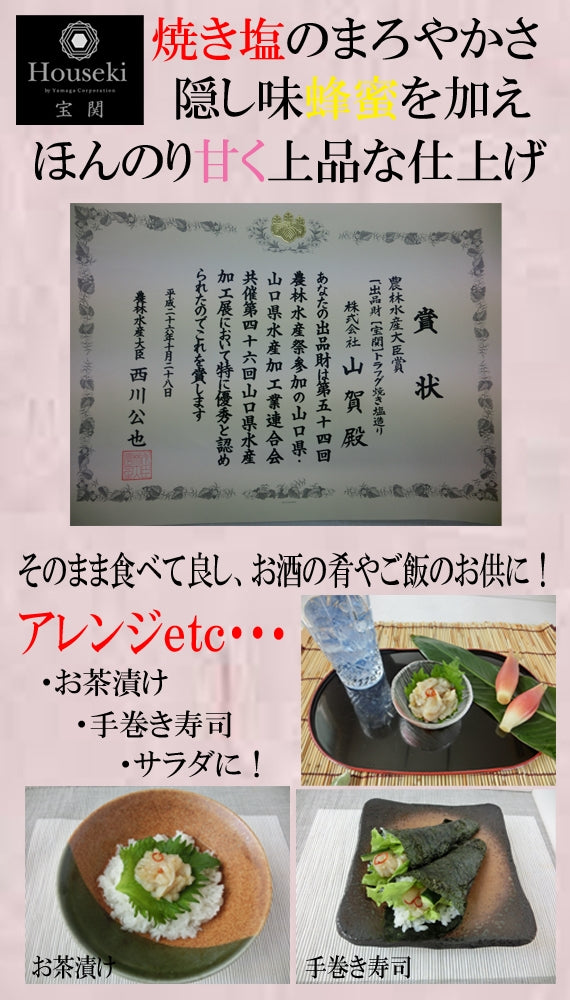 Houseki
by Yamaga Corporation
宝関
焼き塩のまろやかさ
隠し味蜂蜜を加え
ほんのり甘く上品な仕上げ
賞状
農林水産大臣賞
(出品財【宝関】トラフグ焼き塩造り)
株式会社 山賀殿
あなたの出品財は第五十四回
農林水産祭参加の山口県・
山口県水産加工業連合会
共催第四十六回山口県水産
加工展において特に優秀と認め
られたのでこれを賞します
平成二十六年十月二十八日
農林水産大臣 西川公也
そのまま食べて良し、お酒の肴やご飯のお供に！
アレンジetc・・・
・お茶漬け
・手巻き寿司
・サラダに！
お茶漬け
手巻き寿司